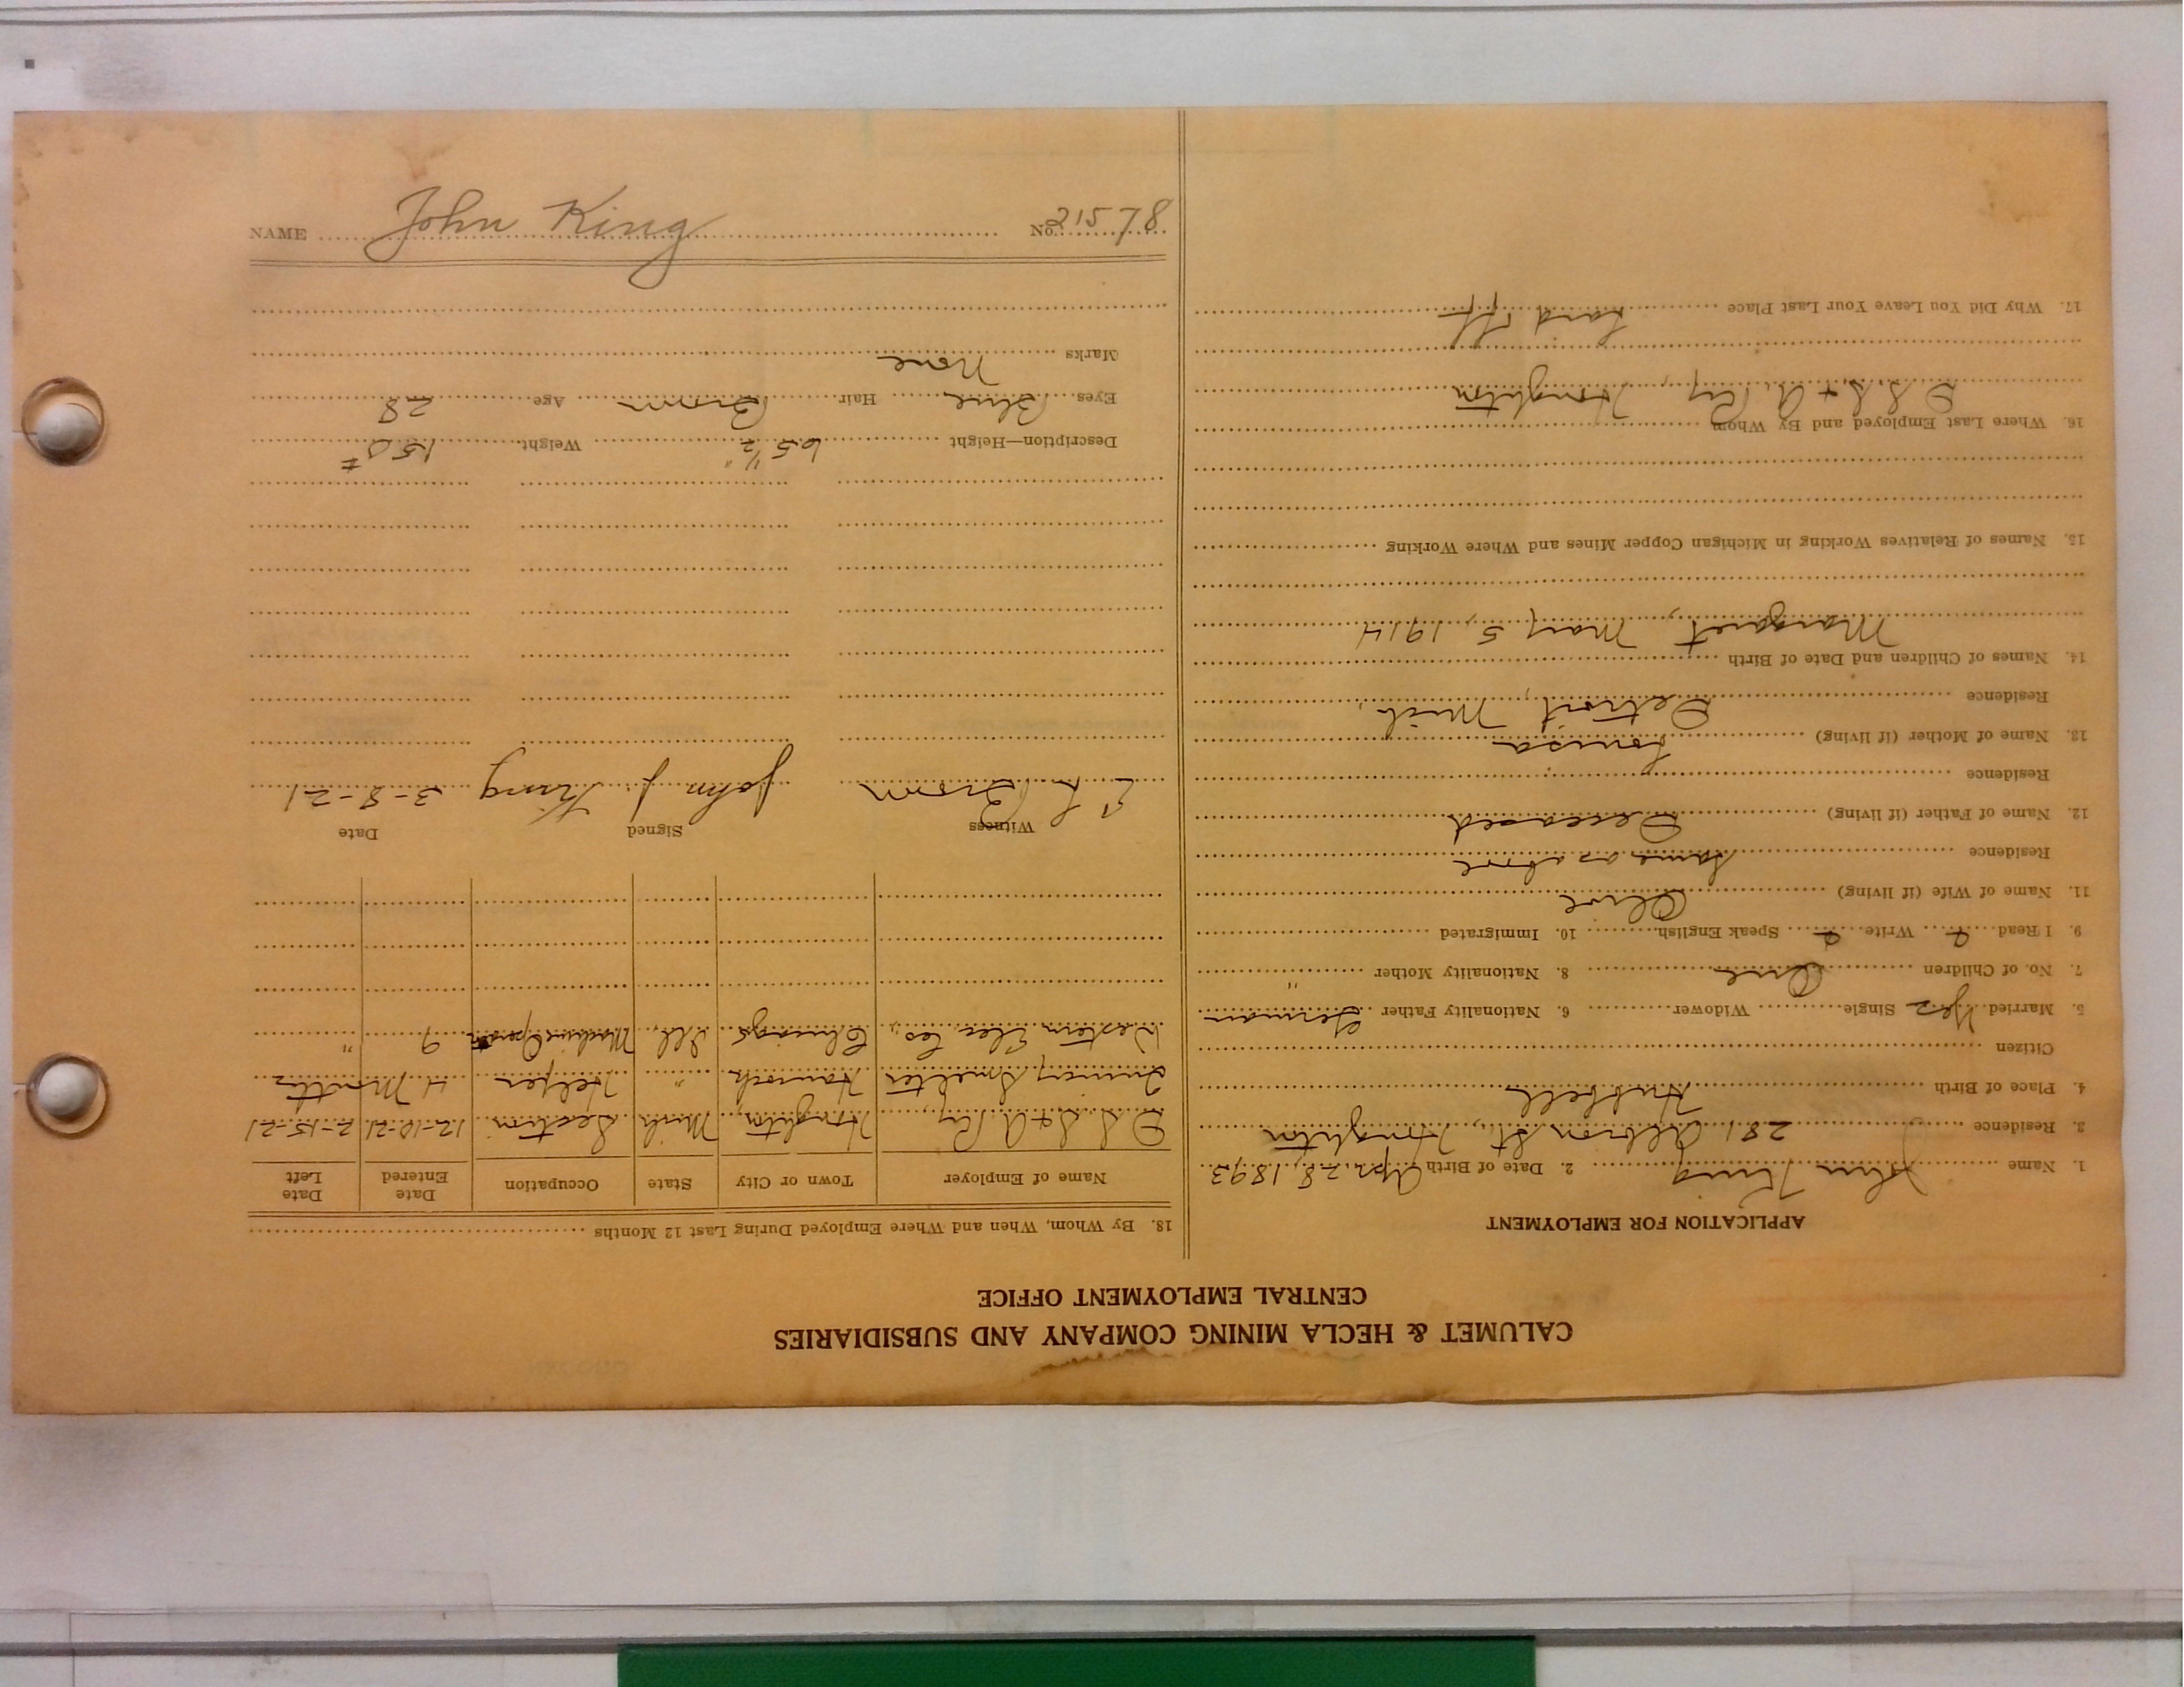 CALUMET & HECLA MINING COMPANY AND SUBSIDIARIES
CENTRAL EMPLOYMENT OFFICE
APPLICATION FOR EMPLOYMENT
1. Name John King 2. Date of Birth Apr. 28, 1893
3. Residence 281 Albion St., Houghton
4. Place of Birth Hubbell
Citizen
5. Married Yes Single Widower 6. Nationality Father German
7. No. of Children One 8. Nationality Mother "
9. I Read Write Speak English 10. Immigrated
11. Name of Wife (if living) Olive
Residence Same as above
12. Name of Father (if living) Deceased
Residence
13. Name of Mother (if living) Louisa
Residence Detroit, Mich.
14. Names of Children and Date of Birth
Margaret, May 5, 1914
15. Names of Relatives Working in Michigan Copper Mines and Where Working
16. Where Last Employed and By Whom
D.S.S. & A. Ry, Houghton
17. Why Did You Leave Your Last Place Laid off
18. By Whom, When and Where Employed During Last 12 Months
Name of Employer Town or City State Occupation Date Entered Date Left
D.S.S. & A Ry, Houghton, Mich Section 12-10-21 2-15-21
Quincy Smelter Hancock " Helper 4 Months
Western Elec. Co., Chicago Ill. Machine Operator 9 "
Witness Signed Date
Brown John J King 3-8-21
Description—Height 65 1/2" Weight 150 #
Eyes Blue Hair Brown Age 28
Marks None
NAME John King No. 21578